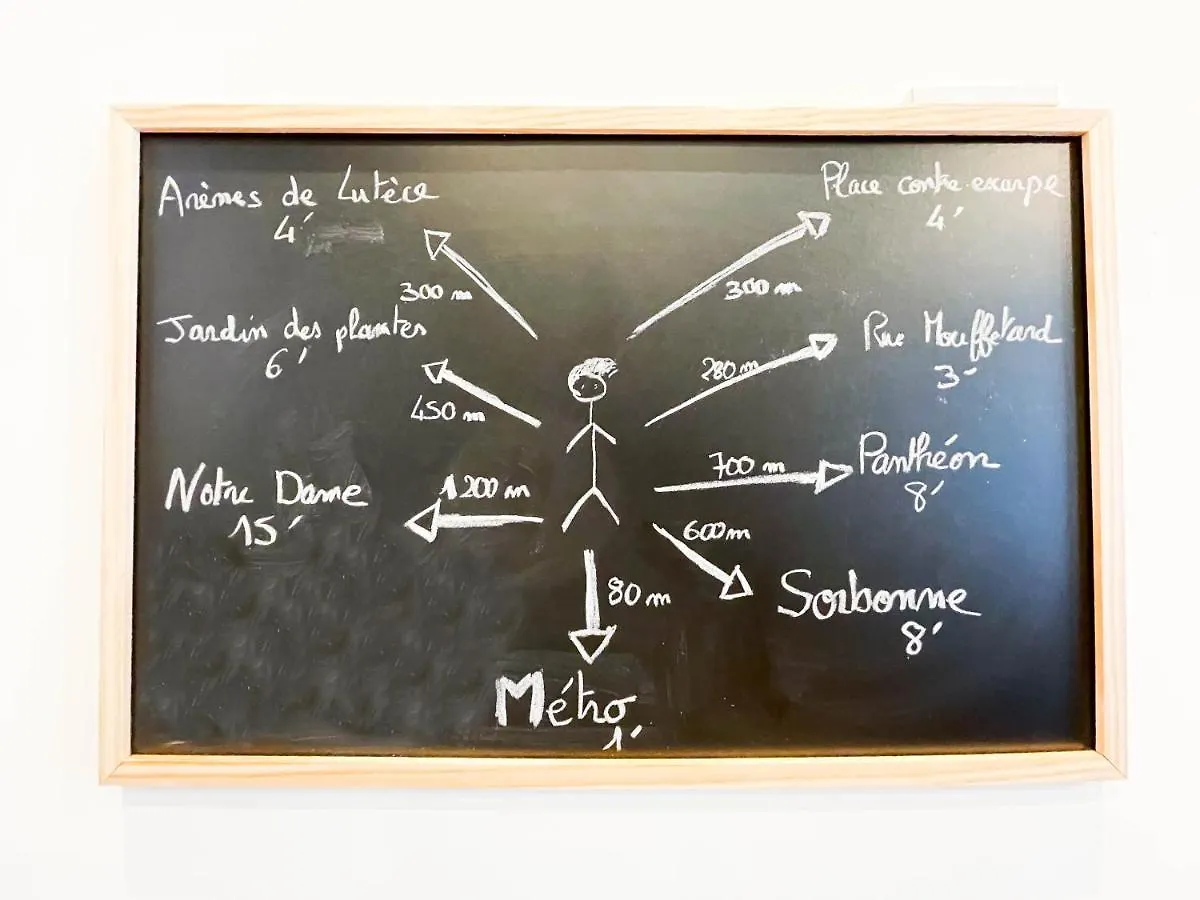 Arènes de Lutèce
4'
300 m
Jardin des plantes
6'
450 m
Notre Dame
15'
1200 m
Place contre-excarpe
4'
300 m
Rue Mouffetard
3'
280 m
Panthéon
8'
700 m
600 m
Sorbonne
8'
80 m
Métro
1'